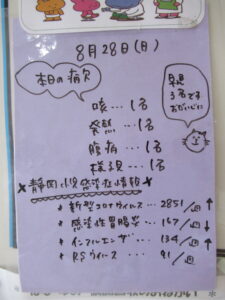 8月28日(日)
本日の病欠
咳…1名
発熱…1名
腹痛…1名
様子見…1名
早退
3名です
おだいじに
静岡小児感染症情報
新型コロナウイルス…2851/週↑
感染性胃腸炎…167/週↓
インフルエンザ…134/週↑
RSウイルス…91/週